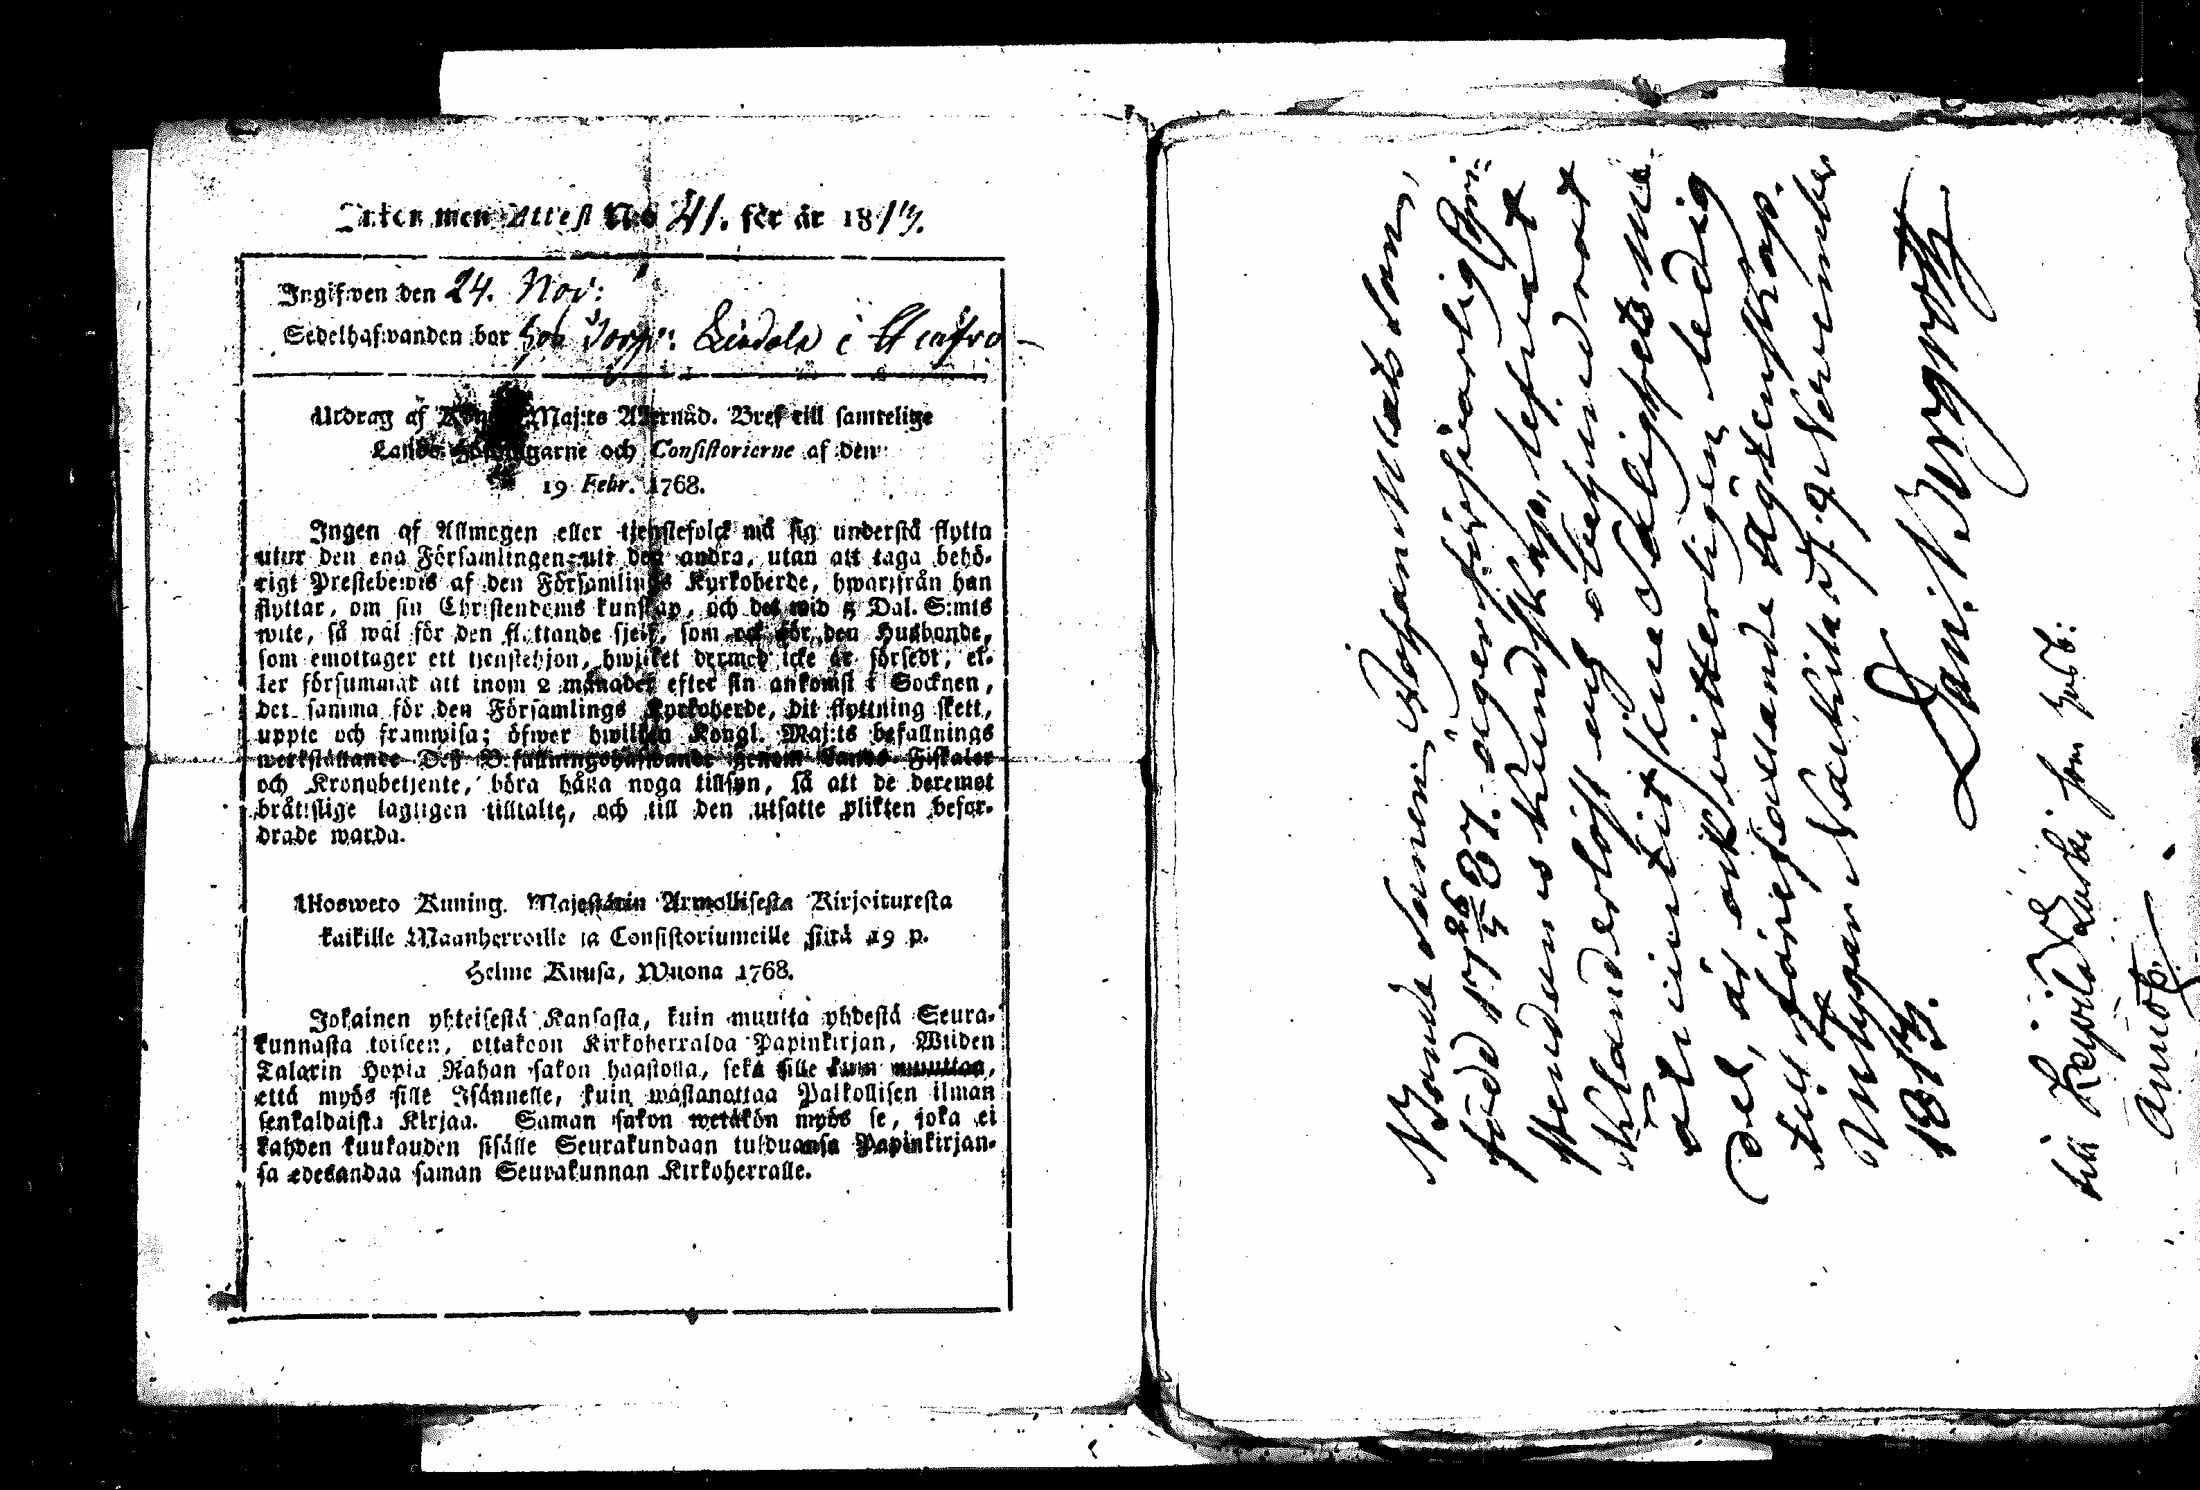 men Attest No 41. för år 1817.
Ingifwen den 24. Nov:
Sedelhafwanden bor hos Torp:
Utdrag af Kongl. Maj:ts Allernåd. Bref till samtelige
Lands-Höfdingarne och Consistorierne af den
19 Febr. 1768.
Ingen af Allmogen eller tjenstefolck må sig understå flytta
utur den ena Församlingen uti den andra, utan att taga behö-
rigt Prestebewis af den Församlings Kyrkoherde, hwarifrån han
flyttar, om sin Christendoms kunskap, och det wid 5 Dal. S:mts
wite, så wäl för den flyttande sjelf, som ock för den Husbonde,
som emottager ett tjenstehjon, hwilket dermed icke är försedt, el-
ler försummat att inom 2 månader efter sin ankomst i Socknen,
det samma för den Församlings Kyrkoherde, dit flyttning skett,
uppte och framwisa; öfwer hwilken Kongl. Maj:ts befallnings
werkställande Deß Befallningshafwande genom Lands-Fiskaler
och Kronobetjente, böra hålla noga tillsyn, så att de deremot
bråttslige lagligen tilltalte, och till den utsatte plikten befor-
drade warda.
Ulosweto Kuning. Majestätin Armollisesta Kirjoituxesta
kaikille Maanherroille ja Consistoriumeille siitä 19 p.
Helme Kuusa, Wuona 1768.
Jokainen yhteisestä Kansasta, kuin muutta yhdestä Seura-
kunnasta toiseen, ottakoon Kirkoherralda Papinkirjan, Wiiden
Talarin Hopia Rahan sakon haastolla, sekä sille kuin muuttaa,
että myös sille Isännelle, kuin wastanottaa Palkollisen ilman
senkaldaista Kirjaa. Saman sakon wetäkön myös se, joka ei
kahden kuukauden sisälle Seurakundaan tulduansa Papinkirjan-
sa edesandaa saman Seurakunnan Kirkoherralle.
Bonde Sonen, Johan Matsson,
född 17 26/4 87. äger försvarlig Chri-
stendoms kundskap, lefvat
oklanderligt och obehindrat
åtniutit sine Salighets me-
del, är ock vitterligen ledig
till förefallande Ägtenskap.
9 November
1817.
Dan.
till som